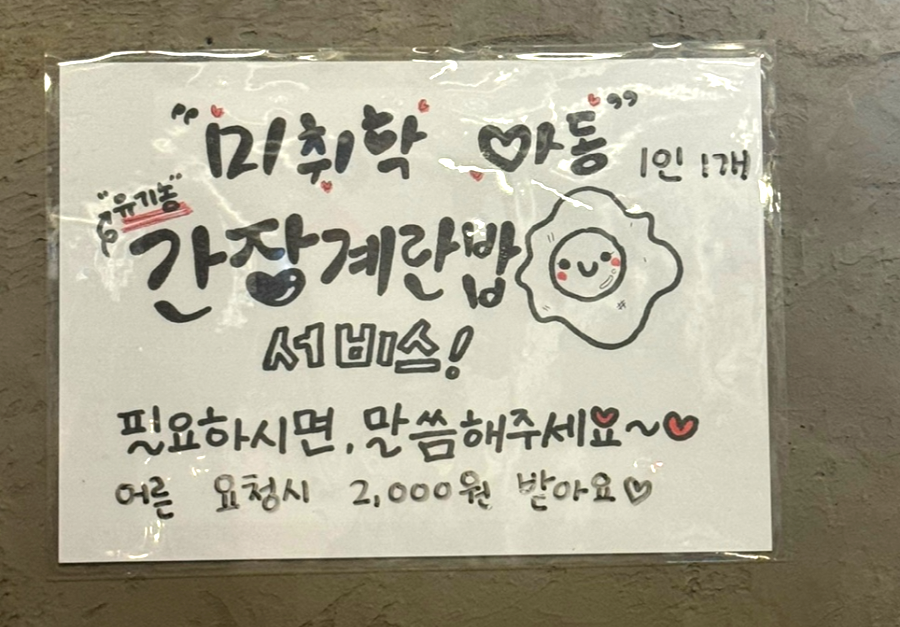 "미취학 아동" 1인 1개
"유기농"
간장계란밥
서비스!
필요하시면, 말씀해주세요~
어른 요청시 2,000원 받아요